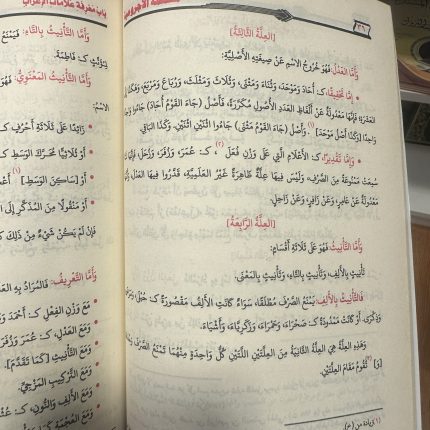 ٣٦
[العِلَّةُ الثَّالِثَةُ]
وَأَمَّا العَدْلُ: فَهُوَ خُرُوجُ الاسْمِ عَنْ صِيغَتِهِ الأَصْلِيَّةِ:
• إِمَّا تَحْقِيقًا: كَـ: أُحَادَ وَمَوْحَدَ، وَثُنَاءَ وَمَثْنَى، وَثُلَاثَ وَمَثْلَثَ، وَرُبَاعَ وَمَرْبَعَ، وَهَكَذَا إِلَى
العَشَرَةِ؛ فَإِنَّهَا مَعْدُولَةٌ عَنْ أَلْفَاظِ العَدَدِ الأُصُولِ مُكَرَّرَةً، فَأَصْلُ (جَاءَ القَوْمُ أُحَادَ) جَاءُوا وَاحِدًا
وَاحِدًا [وَكَذَا أَصْلُ مَوْحَدَ] (١)، وَأَصْلُ (جَاءَ القَوْمُ مَثْنَى) جَاءُوا اثْنَيْنِ اثْنَيْنِ، وَكَذَا البَاقِي.
• وَإِمَّا تَقْدِيرًا: كَـ: الأَعْلَامِ الَّتِي عَلَى وَزْنِ فُعَلَ (٢)، كَـ: عُمَرَ، وَزُفَرَ، وَزُحَلَ، فَإِنَّهَا
سُمِعَتْ مَمْنُوعَةً مِنَ الصَّرْفِ، وَلَيْسَ فِيهَا عِلَّةٌ ظَاهِرَةٌ غَيْرَ العَلَمِيَّةِ، فَقَدَّرُوا فِيهَا العَدْلَ
مَعْدُولَةٌ عَنْ عَامِرٍ، وَعَنْ زَافِرٍ، وَعَنْ زَاحِلٍ.
[العِلَّةُ الرَّابِعَةُ]
وَأَمَّا التَّأْنِيثُ: فَهُوَ عَلَى ثَلَاثَةِ أَقْسَامٍ:
تَأْنِيثٍ بِالأَلِفِ، وَتَأْنِيثٍ بِالتَّاءِ، وَتَأْنِيثٍ بِالمَعْنَى.
فَالتَّأْنِيثُ بِالأَلِفِ: يَمْنَعُ الصَّرْفَ مُطْلَقًا، سَوَاءٌ كَانَتِ الأَلِفُ مَقْصُورَةً كَـ: حُبْلَى،
وَذِكْرَى، أَوْ كَانَتْ مَمْدُودَةً كَـ: صَحْرَاءَ، وَحَمْرَاءَ، وَزَكَرِيَّاءَ، وَأَشْيَاءَ.
وَهَذِهِ هِيَ العِلَّةُ الثَّانِيَةُ مِنَ العِلَّتَيْنِ اللَّتَيْنِ كُلُّ وَاحِدَةٍ مِنْهُمَا تَمْنَعُ الصَّرْفَ
[وَ] (٣) تَقُومُ مَقَامَ العِلَّتَيْنِ.
(١) زيادة من (ج)
بَابُ مَعْرِفَةِ عَلَامَاتِ الإِعْرَابِ
وَأَمَّا التَّأْنِيثُ بِالتَّاءِ: فَيَمْنَعُ
كَـ: فَاطِمَةَ.
وَأَمَّا التَّأْنِيثُ المَعْنَوِيُّ: فَهُوَ
الاسْمُ:
• زَائِدًا عَلَى ثَلَاثَةِ أَحْرُفٍ
• أَوْ ثُلَاثِيًّا مُحَرَّكَ الوَسَطِ
• أَوْ [سَاكِنَ الوَسَطِ] (١)
• أَوْ مَنْقُولًا مِنَ المُذَكَّرِ إِلَى
فَإِنْ لَمْ يَكُنْ شَيْءٌ مِنْ ذَلِكَ
وَأَمَّا التَّعْرِيفُ: فَالمُرَادُ بِهِ
• مَعَ وَزْنِ الفِعْلِ كَـ: أَحْمَدَ
• وَمَعَ العَدْلِ، كَـ: عُمَرَ وَزُفَرَ
• وَمَعَ التَّأْنِيثِ [كَمَا تَقَدَّمَ].
• وَمَعَ التَّرْكِيبِ المَزْجِيِّ.
• وَمَعَ الأَلِفِ وَالنُّونِ، كَـ:
• وَمَعَ العُجْمَةِ